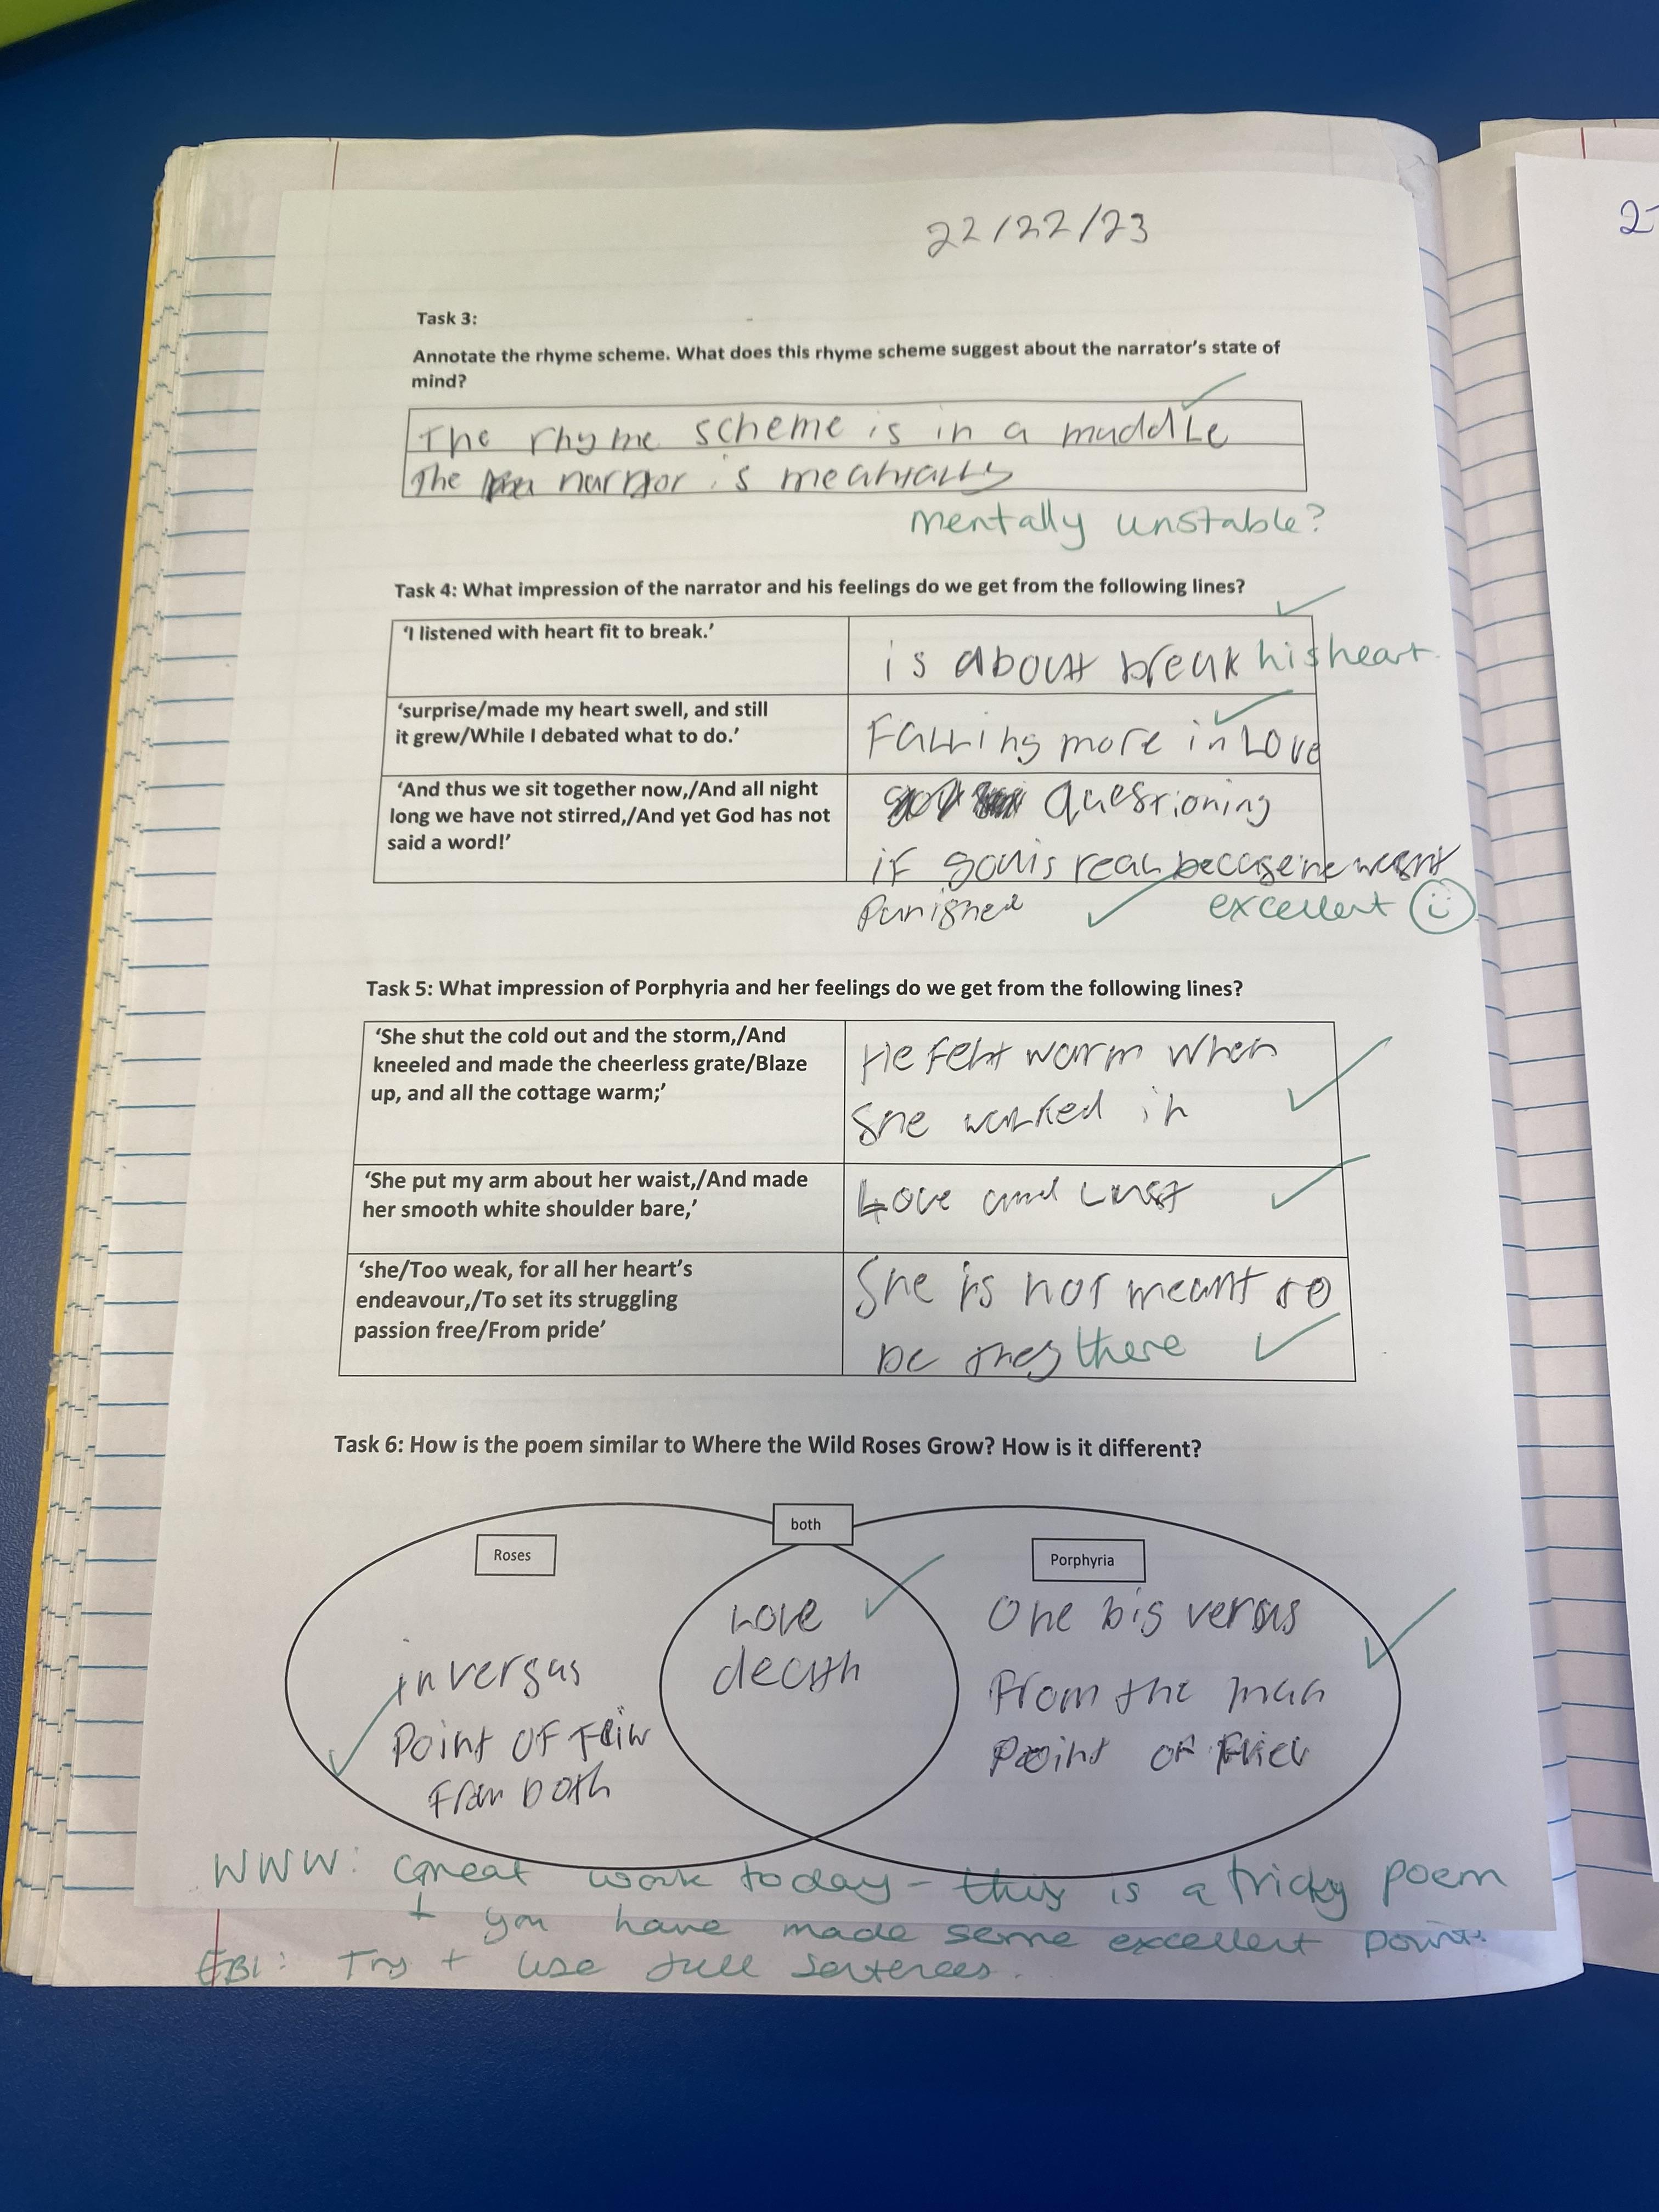 22/22/23
2
Task 3:
Annotate the rhyme scheme. What does this rhyme scheme suggest about the narrator's state of
mind?
The rhyme scheme is in a muddle
The narrator is meantally
mentally unstable?
Task 4: What impression of the narrator and his feelings do we get from the following lines?
'I listened with heart fit to break.'
is about break his heart.
'surprise/made my heart swell, and still
it grew/While I debated what to do.'
Falling more in Love
'And thus we sit together now,/And all night
long we have not stirred,/And yet God has not
said a word!'
Questioning
if god is real because he wasnt
Punished
excellent
Task 5: What impression of Porphyria and her feelings do we get from the following lines?
'She shut the cold out and the storm,/And
kneeled and made the cheerless grate/Blaze
up, and all the cottage warm;'
He felt warm when
She walked in
'She put my arm about her waist,/And made
her smooth white shoulder bare,'
Love and Lust
'she/Too weak, for all her heart's
endeavour,/To set its struggling
passion free/From pride'
She is not meant to
be they there
Task 6: How is the poem similar to Where the Wild Roses Grow? How is it different?
both
Roses
Porphyria
Love
death
One big versus
From the man
Point of
in versus
Point of
From both
WWW: Great work today - this is a tricky poem
+ you have made some excellent points.
EBI: Try + use full sentences.